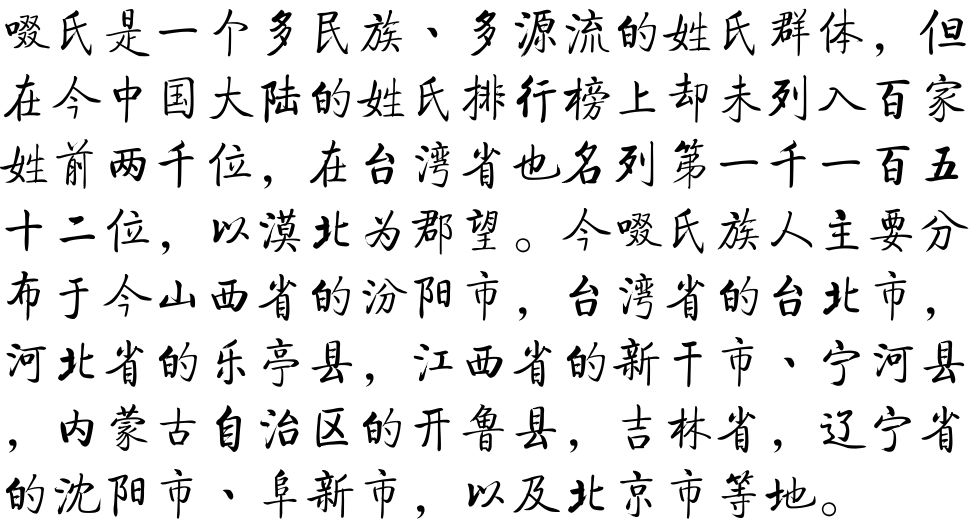 啜氏是一个多民族、多源流的姓氏群体，但
在今中国大陆的姓氏排行榜上却未列入百家
姓前两千位，在台湾省也名列第一千一百五
十二位，以漠北为郡望。今啜氏族人主要分
布于今山西省的汾阳市，台湾省的台北市，
河北省的乐亭县，江西省的新干市、宁河县
，内蒙古自治区的开鲁县，吉林省，辽宁省
的沈阳市、阜新市，以及北京市等地。